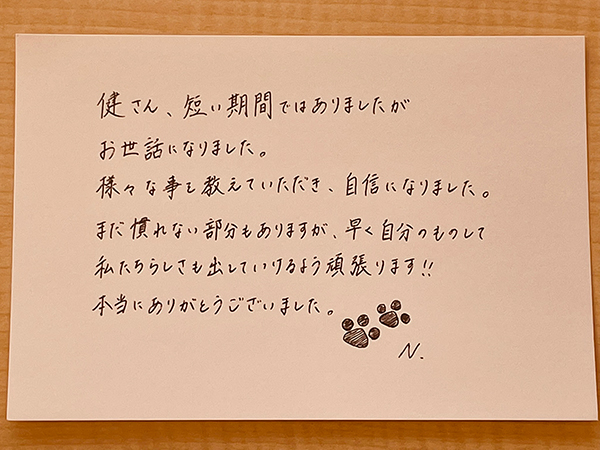 健さん、短い期間ではありましたが
お世話になりました。
様々な事を教えていただき、自信になりました。
まだ慣れない部分もありますが、早く自分のものして
私たちらしさも出していけるよう頑張ります!!
本当にありがとうございました。
N.